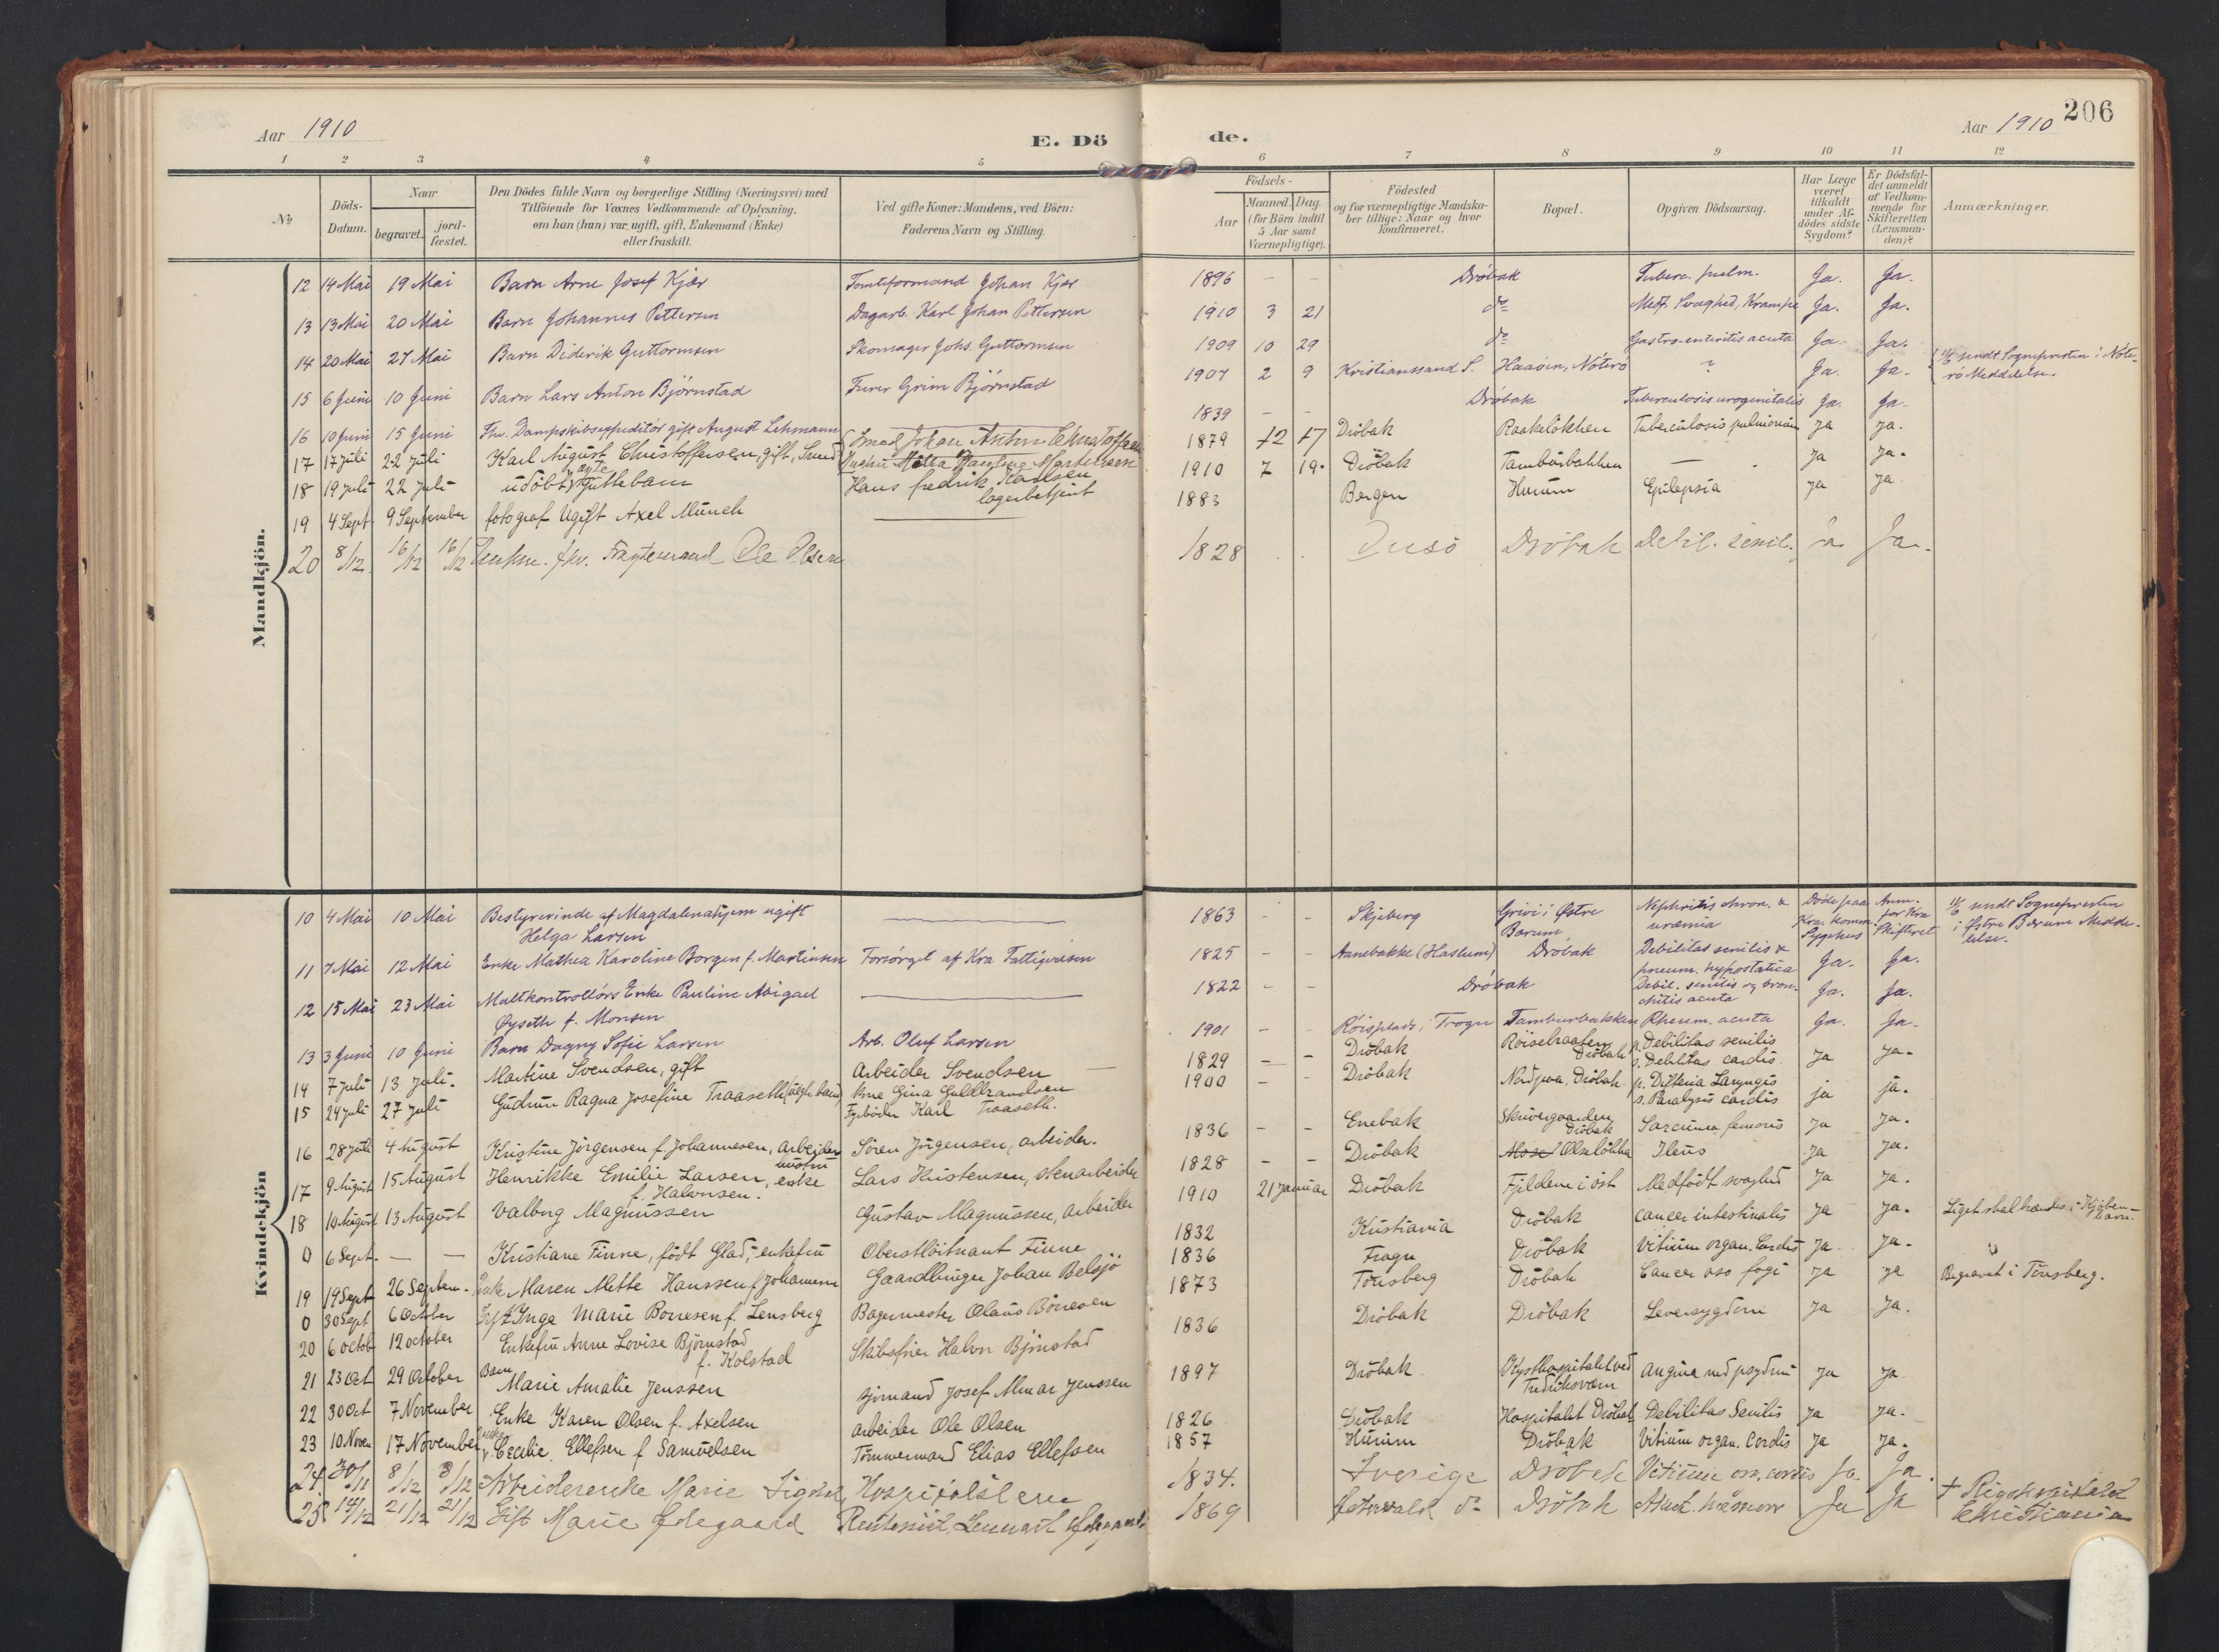 206
Aar 1910
E. Döde.
Aar 1910
1 2 3 4 5 6 7 8 9 10 11 12
No
Döds-Datum.
Naar
begravet. jord-fæstet.
Den Dödes fulde Navn og borgerlige Stilling (Næringsvei) med
Tilföiende for Voxnes Vedkommende af Oplysning,
om han (hun) var ugift, gift, Enkemand (Enke)
eller fraskilt.
Ved gifte Koner: Mandens, ved Börn:
Faderens Navn og Stilling.
Födsels-
Aar
Maaned. Dag.
(for Börn indtil
5 Aar samt
Værnepligtige).
Födested
og for værnepligtige Mandska-
ber tillige: Naar og hvor
konfirmeret.
Bopæl.
Opgiven Dödsaarsag.
Har Læge
været
tilkaldt
under Af-
dödes sidste
Sygdom?
Er Dödsfal-
det anmeldt
af Vedkom-
mende for
Skifteretten
(Lensman-
den)?
Anmærkninger.
Mandkjön.
12 14 Mai 19 Mai Barn Arne Josef Kjær Tomteformand Johan Kjær 1896 - - Dröbak Tuberc. pulm. Ja. Ja.
13 13 Mai 20 Mai Barn Johannes Pettersen Dagarb. Karl Johan Pettersen 1910 3 21 do Medf. Svaghed, Krampe Ja. Ja.
14 20 Mai 27 Mai Barn Diderik Guttormsen Skomager Johs. Guttormsen 1909 10 29 do Gastro-enteritis acuta Ja. Ja.
15 6 Juni 10 Juni Barn Lars Anton Björnstad Furer Grim Björnstad 1907 2 9 Kristianssand S. Haaöen, Nöterö ? Ja. Ja. sendt Sognepresten i Nöte-
rö Meddelelse.
16 10 Juni 15 Juni Fhv. Dampskibsexpeditör gift August Lehmann 1839 - - Dröbak Tuberculosis urogenitalis Ja. Ja.
17 17 Juli 22 Juli Karl August Christoffersen, gift, Smed Smed Johan Anton Christoffersen 1879 12 17 Dröbak Raakelökken Tuberculosis pulmonum ja ja.
18 19 Juli 22 Juli udöbt ægte Guttebarn Hans fredrik Karlsen
lagerbetjent 1910 7 19. Dröbak Tamburbakken — ja ja.
19 4 Sept. 9 September fotograf Ugift Axel Munch 1883 Bergen Hurum Epilepsia ja ja
20 8/12 16/12 16/12 Enkem. fhv. Fragtemand Ole Olsen 1828 Dröbak Debil. senil. Ja Ja.
Kvindekjön
10 4 Mai 10 Mai Bestyrerinde af Magdalenahjem ugift
Helga Larsen 1863 - - Skjeberg Grini i Østre
Bærum Nephritis chron. &
uræmia Döde paa
Kra. komm.
Sygehus Anm.
for Kra
Skifteret sendt Sognepresten
i Østre Bærum Medde-
lelse.
11 7 Mai 12 Mai Enke Mathea Karoline Borgen f. Martinsen Forsörget af Kra Fattigvæsen 1825 - - Aanebakke (Haslum) Dröbak Debilitas senilis &
pneum. hypostatica Ja. Ja.
12 15 Mai 23 Mai Maltkontrollörs Enke Pauline Abigael
Øyseth f. Monsen 1822 - - Dröbak Debil. senilis og bron-
chitis acuta Ja. Ja.
13 3 Juni 10 Juni Barn Dagny Sofie Larsen Arb. Oluf Larsen 1901 - - Röisplads i Frogn Tamburbakken Rheum. acuta Ja. Ja.
14 7 juli 13 juli. Martine Svendsen, gift Arbeider Svendsen 1829 — - Dröbak Dröbak p. Debilitas senilis
s. Debilitas cordis ja ja.
15 24 juli 27 juli Gudrun Ragna Josefine Traaseth (uægte barn) Gina Guldbrandsen
Fyrböder Karl Traaseth. 1900 - - Dröbak Dröbak p. Difteria Laryngis
s. Paralysis cordis ja ja.
16 28 juli 4 August Kristine Jörgensen f. Johannesen, arbeider
hustru Sören Jörgensen, arbeider. 1836 - - Enebak Skrivergaarden
Dröbak Sarcoma femoris ja ja.
17 9 August 15 August Henrikke Emilie Larsen, enke
f. Halvorsen. Lars Kristensen, stenarbeider 1828 - - Dröbak Olselökka Ileus ja ja.
18 10 August 13 August Valborg Magnussen Gustav Magnussen, arbeider 1910 21 januar Dröbak Fjeldene i öst Medfödt svaghed ja ja.
0 6 Sept. — — Kristiane Finne, födt Glad, enkefru Oberstlöitnant Finne 1832 Kristiania Dröbak cancer intestinalis ja ja. Liget skal brændes i Kjöben-
havn.
19 19 Sept 26 Septem. Enke Maren Mette Hanssen f. Johannesen Gaardbruger Johan Belsjö 1836 Frogn Dröbak Vitium organ. Cordis ja ja.
0 30 Sept 6 October Gift Inga Marie Borresen f. Lensberg Bagermester Olaus Börresen 1873 Tönsberg Dröbak Cancer oso fagi ja ja Begravet i Tönsberg.
20 6 octob 12 october Enkefru Anne Lovise Björnstad
f. Kolstad Skibsförer Halvor Björnstad 1836 Dröbak Dröbak Leversygdom ja ja.
21 23 Oct 29 October Barn
Marie Amalie Jenssen sjömand Josef Almar Jenssen 1897 Dröbak Kysthospitalet ved
Fredriksværn ja ja
22 30 Oct 7 November Enke Karen Olsen f. Axelsen arbeider Ole Olsen 1826 Dröbak Hospitalet Dröbak Debilitas Senilis ja ja.
23 10 Novem 17 November Cecilie Ellefsen f Samuelsen Tömmermand Elias Ellefsen 1857 Hurum Dröbak Vitium organ. Cordis ja ja.
24 30/11 8/12 8/12 Arbeiderenke Marie Hospitalslem 1834. Sverige Dröbak Vitium org. cordis Ja Ja.
25 14/12 21/12 21/12 Gift Marie Ødegaard Rentenist, Lennart Ødegaard 1869 do Dröbak Akut Ja Ja † Rigshospitalet
Christiania